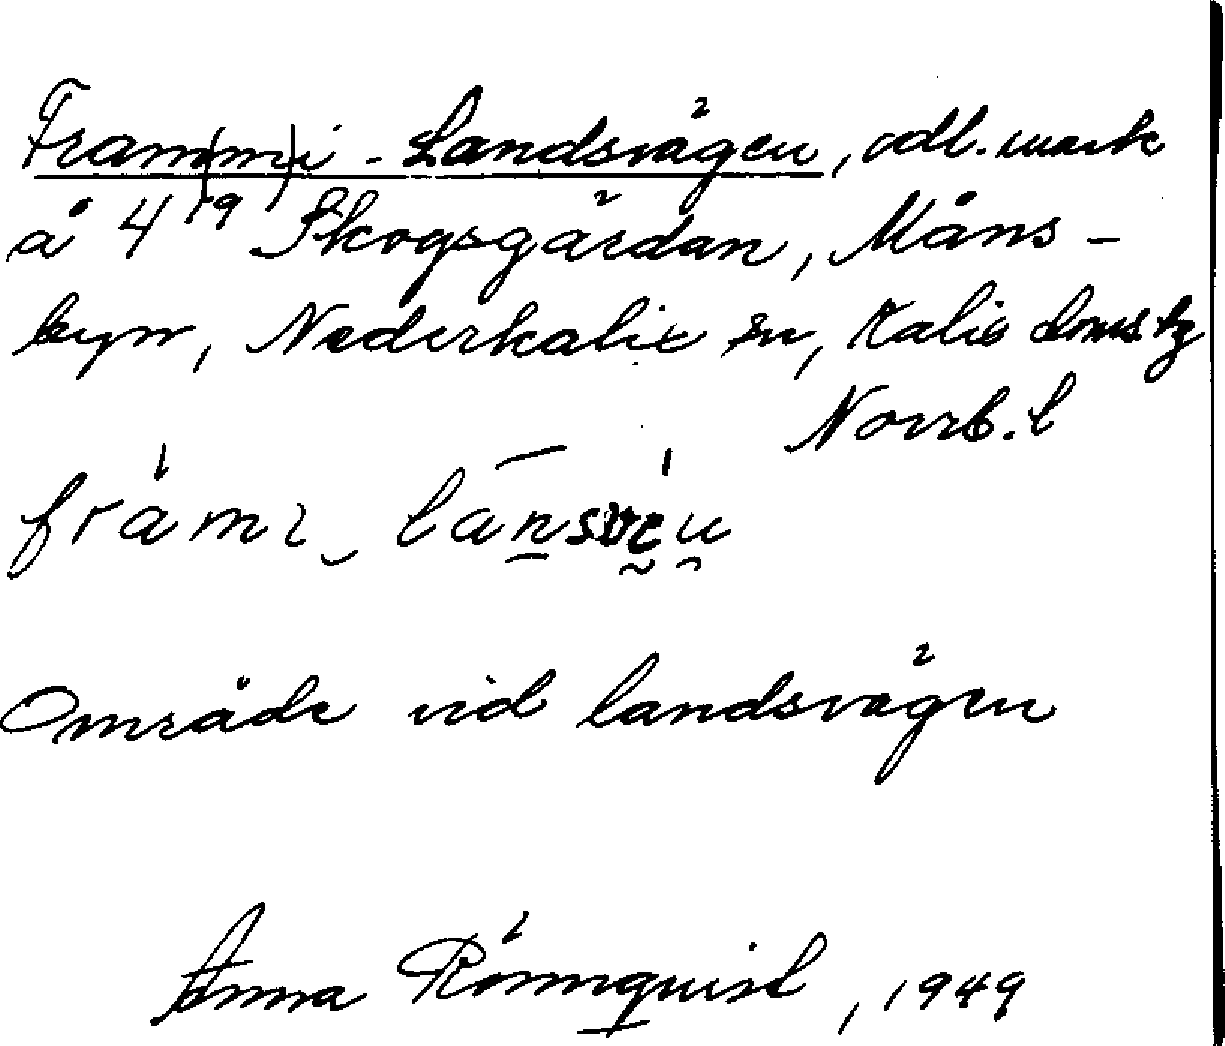 Fram(m)i-Landsvägen, odl. mark
å 4¹⁹ Skogsgärdan, Måns-
byn, Nederkalix sn, Kalix doms.tg
Norrb. l
Område vid landsvägen
Anna Rönnquist, 1949